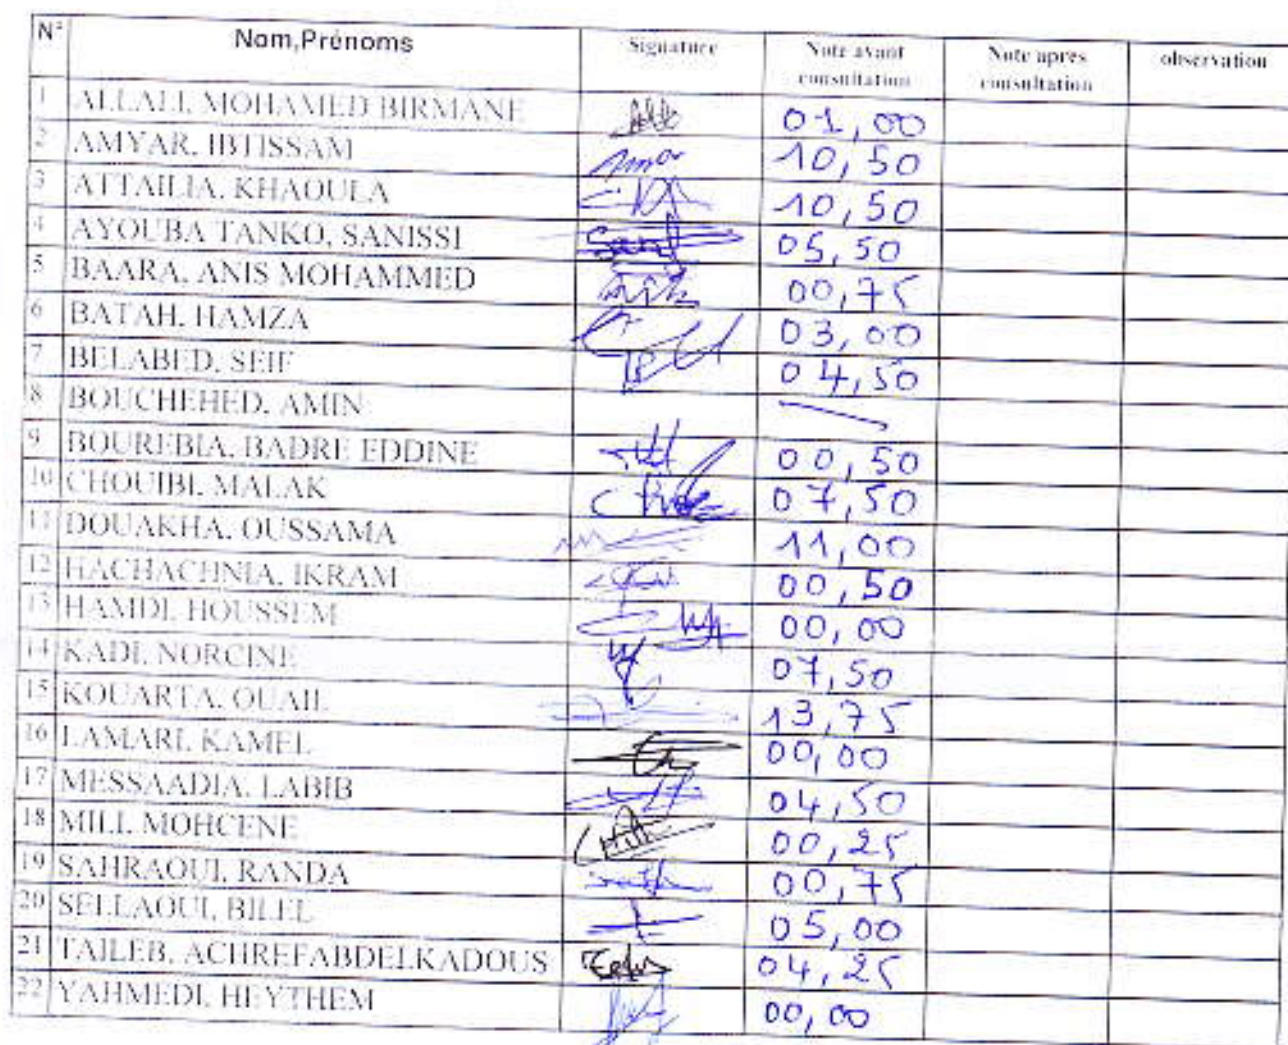 N° Nom,Prénoms Signature Note avant consultation Note apres consultation observation
1 ALLALI, MOHAMED BIRMANE 01,00
2 AMYAR, IBTISSAM 10,50
3 ATTAILIA, KHAOULA 10,50
4 AYOUBA TANKO, SANISSI 05,50
5 BAARA, ANIS MOHAMMED 00,75
6 BATAH, HAMZA 03,00
7 BELABED, SEIF 04,50
8 BOUCHEHED, AMIN
9 BOUREBIA, BADRE EDDINE 00,50
10 CHOUIBI, MALAK 07,50
11 DOUAKHA, OUSSAMA 11,00
12 HACHACHNIA, IKRAM 00,50
13 HAMDI, HOUSSEM 00,00
14 KADI, NORCINE 07,50
15 KOUARTA, OUAIL 13,75
16 LAMARI, KAMEL 00,00
17 MESSAADIA, LABIB 04,50
18 MILI, MOHCENE 00,25
19 SAHRAOUI, RANDA 00,75
20 SELLAOUI, BILEL 05,00
21 TAILEB, ACHREFABDELKADOUS 04,25
22 YAHMEDI, HEYTHEM 00,00